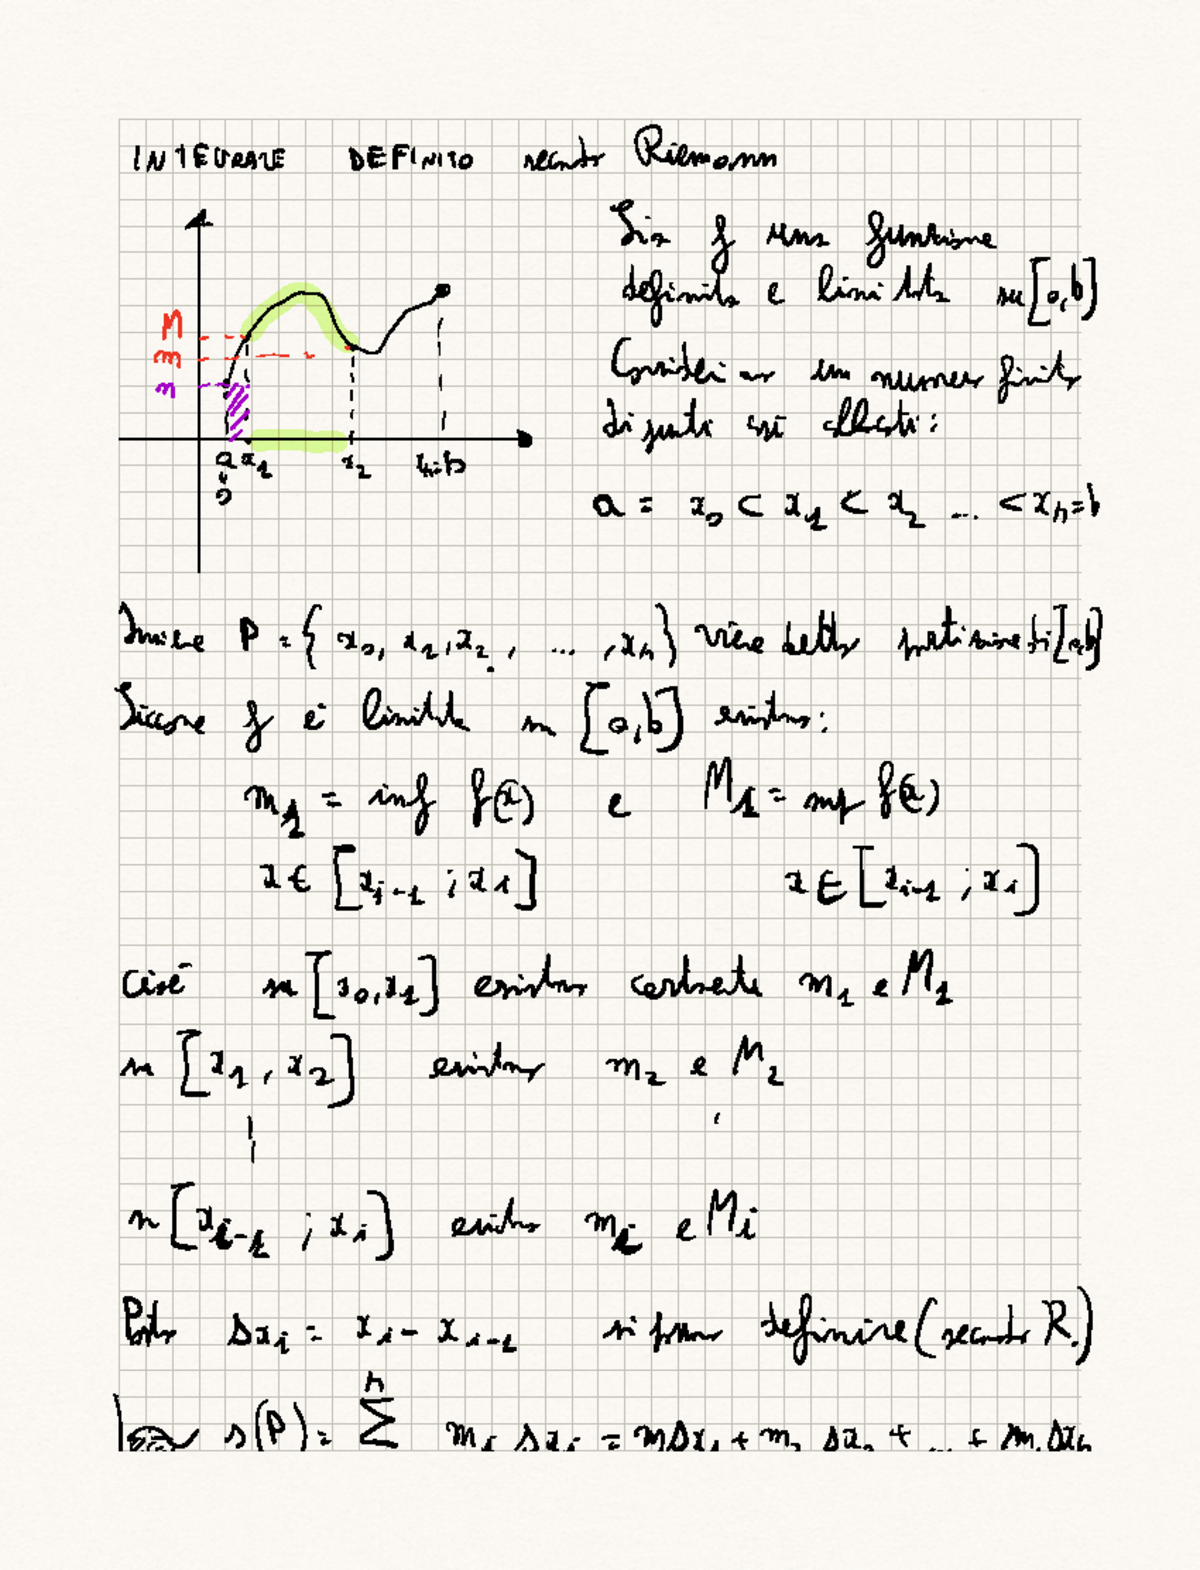 INTEGRALE DEFINITO secondo Riemann
Sia f una funzione
definita e limitata su [a,b]
M
m
m
Consideriamo un numero finito
di punti così allocati:
a x₁ x₂ xₙ=b
a = x₀ < x₁ < x₂ ... < xₙ=b
Insieme P = { x₀, x₁, x₂, ... , xₙ } viene detto partizione di [a,b]
Siccome f è limitata su [a,b] esistono:
m₁ = inf f(x) e M₁ = sup f(x)
x ∈ [xᵢ₋₁ ; xᵢ] x ∈ [xᵢ₋₁ ; xᵢ]
cioè su [x₀,x₁] esistono certamente m₁ e M₁
su [x₁, x₂] esistono m₂ e M₂
su [xᵢ₋₁ ; xᵢ] esistono mᵢ e Mᵢ
Posto Δxᵢ = xᵢ - xᵢ₋₁ si possono definire (secondo R.)
s(P) = Σ mᵢ Δxᵢ = mΔx₁ + m₂ Δx₂ + ... + mₙ Δxₙ
n